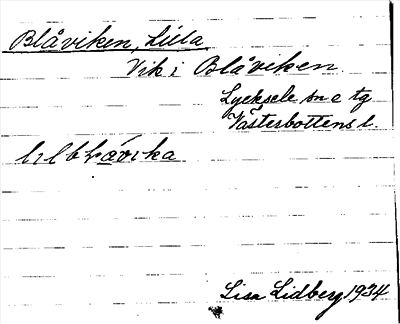 Blåviken, Lilla
Vik i Blåviken
Lycksele sn o tg
Västerbottens l
Lisa Lidberg 1934